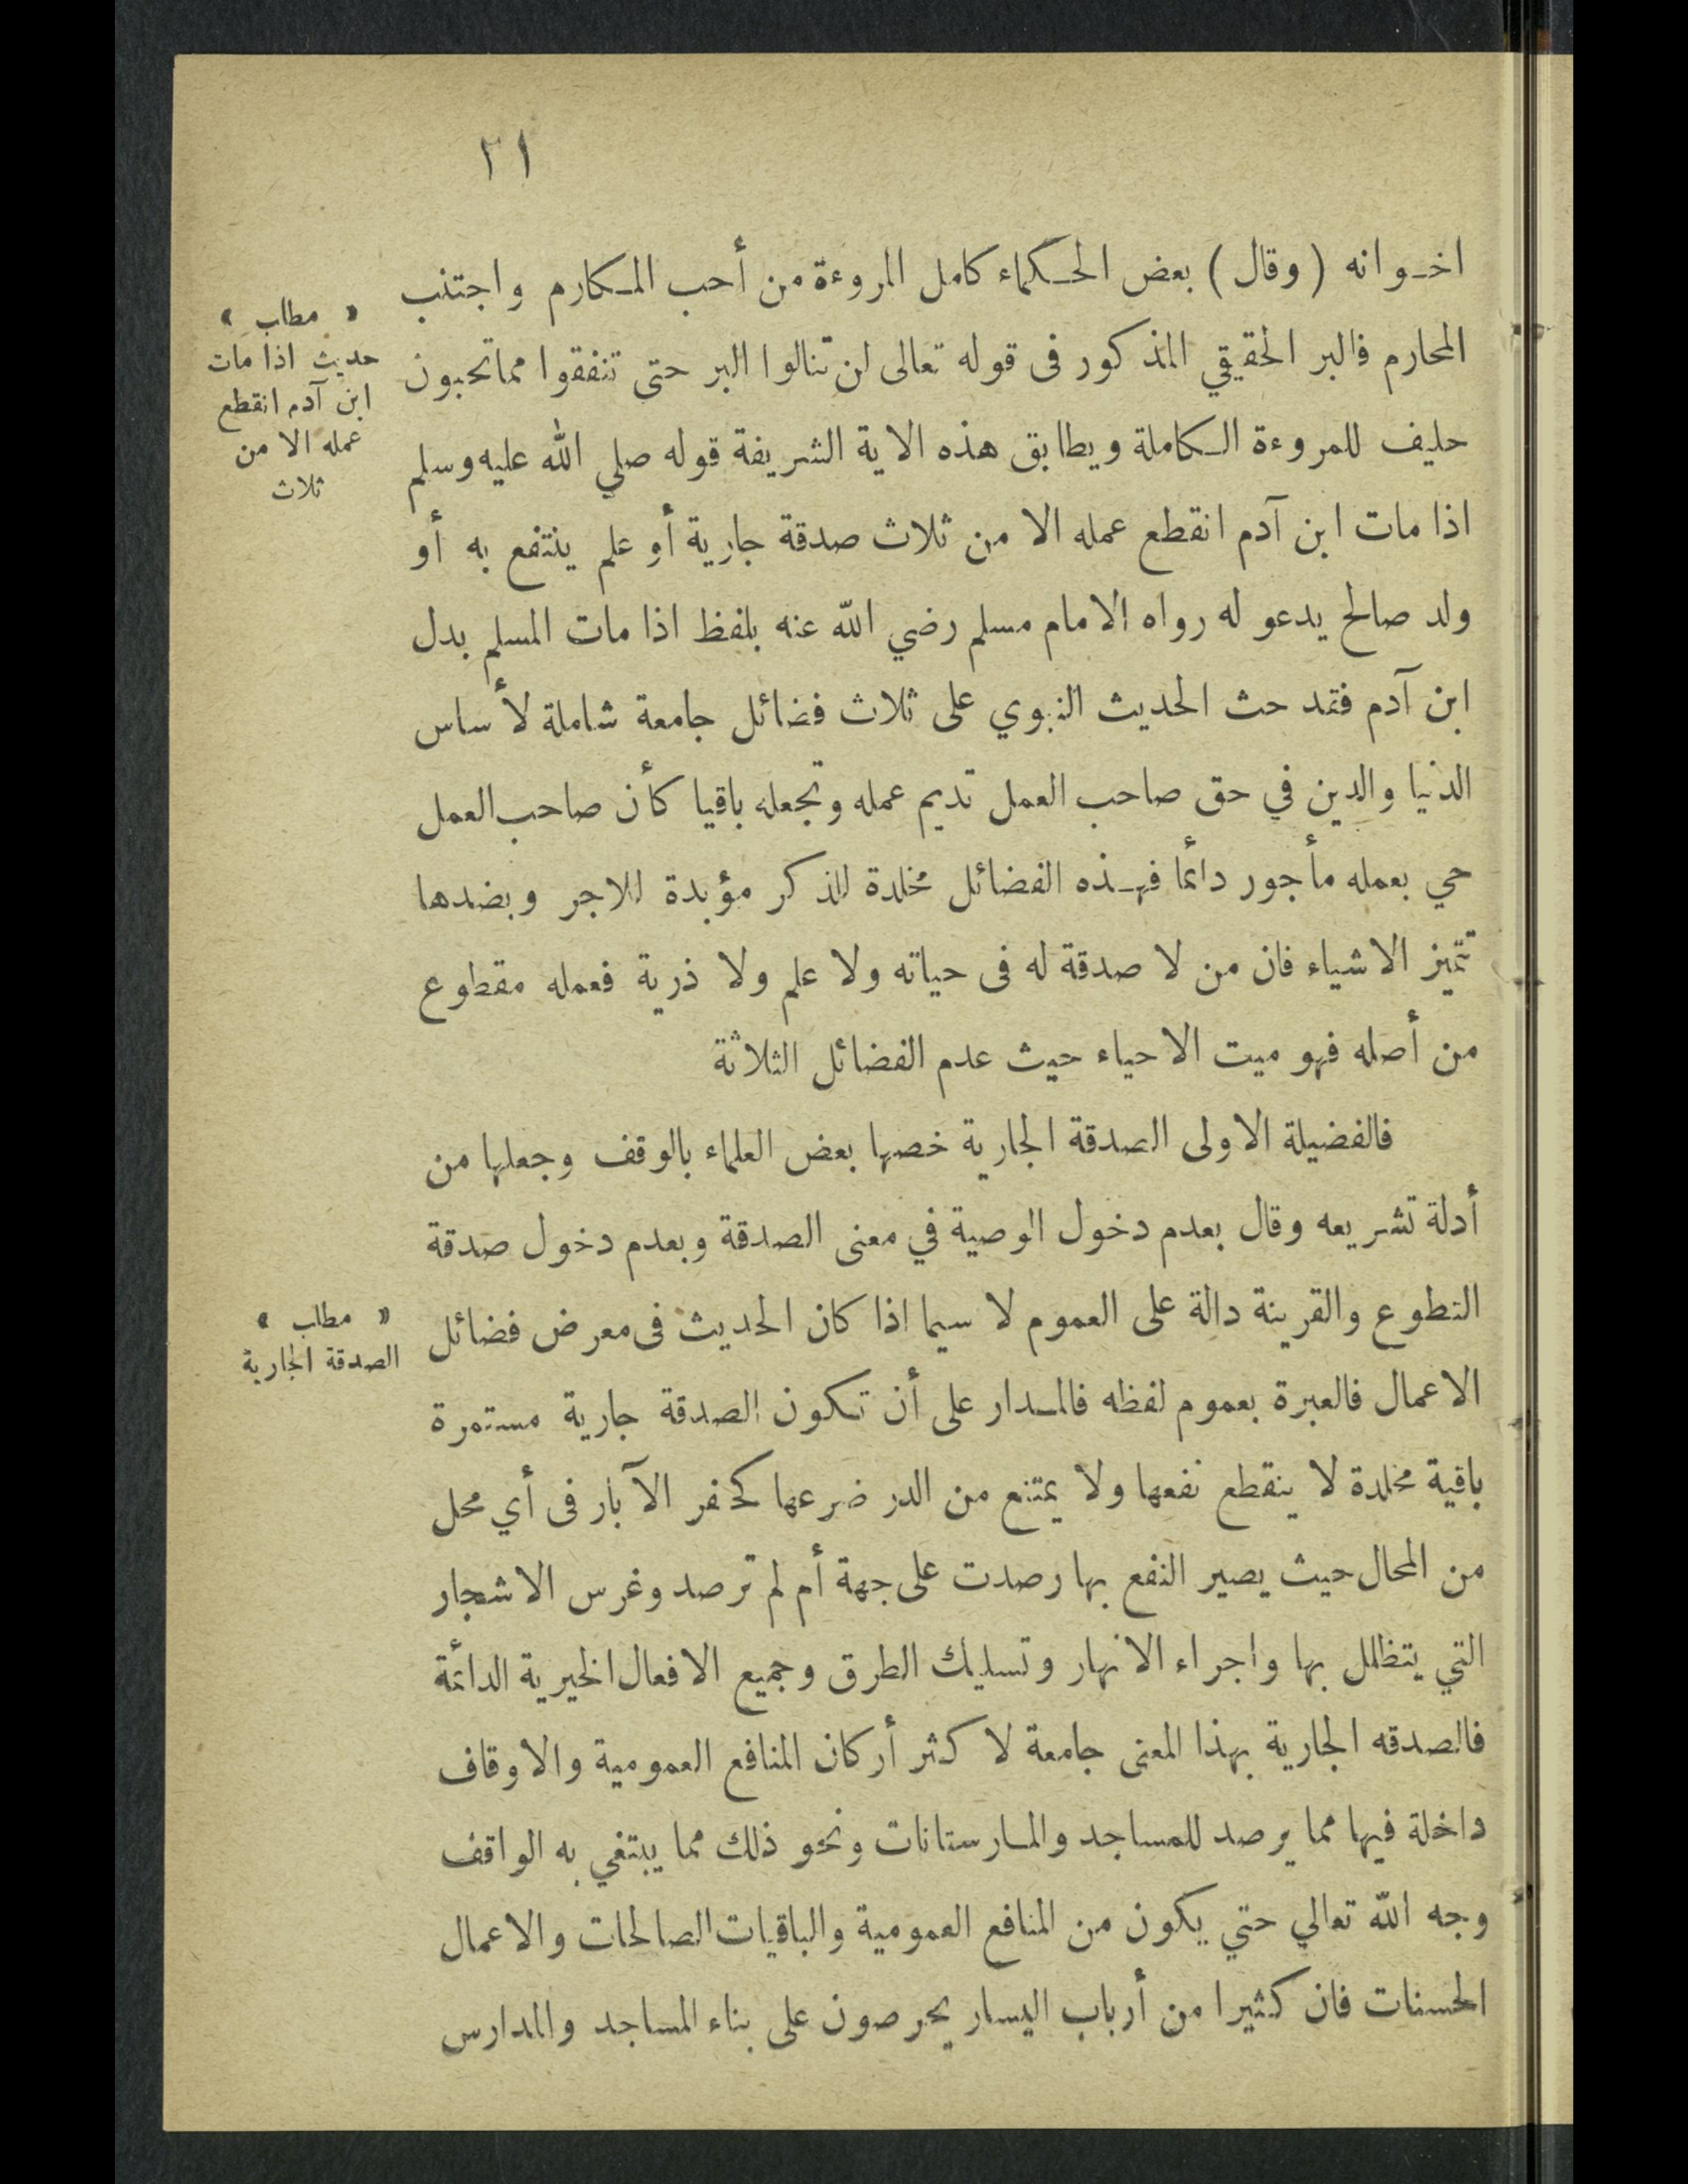 ٢١
اخوانه (وقال) بعض الحكماء كامل المروءة من أحب المكارم واجتنب
المحارم فالبر الحقيقي المذكور فى قوله تعالى لن تنالوا البر حتى تنفقوا مما تحبون
حليف للمروءة الكاملة ويطابق هذه الاية الشريفة قوله صلي الله عليه وسلم
اذا مات ابن آدم انقطع عمله الا من ثلاث صدقة جارية أو علم ينتفع به أو
ولد صالح يدعو له رواه الامام مسلم رضي الله عنه بلفظ اذا مات المسلم بدل
ابن آدم فقد حث الحديث النبوي على ثلاث فضائل جامعة شاملة لأساس
الدنيا والدين في حق صاحب العمل تديم عمله وتجعله باقيا كأن صاحب العمل
حي بعمله مأجور دائما فهذه الفضائل مخلدة للذكر مؤبدة للاجر وبضدها
تتميز الاشياء فان من لا صدقة له فى حياته ولا علم ولا ذرية فعمله مقطوع
من أصله فهو ميت الاحياء حيث عدم الفضائل الثلاثة
فالفضيلة الاولى الصدقة الجارية خصها بعض العلماء بالوقف وجعلها من
أدلة تشريعه وقال بعدم دخول الوصية في معنى الصدقة وبعدم دخول صدقة
التطوع والقرينة دالة على العموم لا سيما اذا كان الحديث فى معرض فضائل
الاعمال فالعبرة بعموم لفظه فالمدار على أن تكون الصدقة جارية مستمرة
باقية مخلدة لا ينقطع نفعها ولا يمتنع من الدر ضرعها كحفر الآبار فى أي محل
من المحال حيث يصير النفع بها رصدت على جهة أم لم ترصد وغرس الاشجار
التي يتظلل بها واجراء الانهار وتسليك الطرق وجميع الافعال الخيرية الدائمة
فالصدقه الجارية بهذا المعنى جامعة لاكثر أركان المنافع العمومية والاوقاف
داخلة فيها مما يرصد للمساجد والمارستانات ونحو ذلك مما يبتغي به الواقف
وجه الله تعالي حتي يكون من المنافع العمومية والباقيات الصالحات والاعمال
الحسنات فان كثيرا من أرباب اليسار يحرصون على بناء المساجد والمدارس
« مطلب »
حديث اذا مات
ابن آدم انقطع
عمله الا من
ثلاث
« مطلب »
الصدقة الجارية